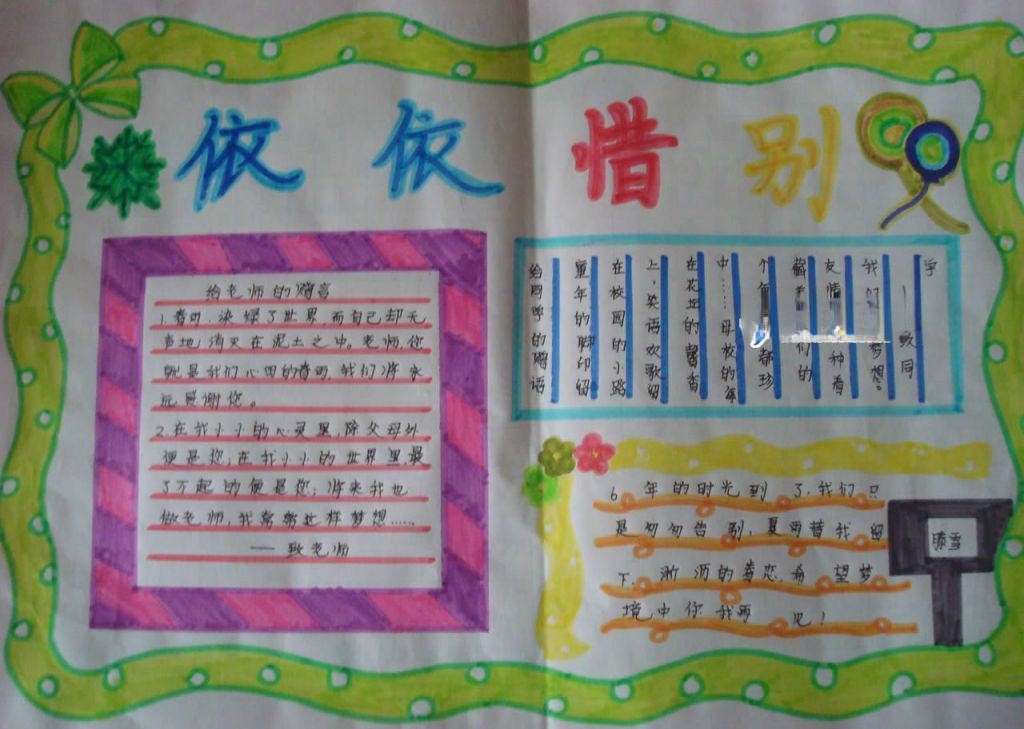 依依惜别
给老师的赠言
1.春雨,染绿了世界,而自己却无
声地消灭在泥土之中。老师,您
就是我们心田的春雨,我们将永
远感谢您。
2.在我小小的心灵里,除父母外
便是您;在我小小的世界里,最
了不起的便是您;将来我也
做老师,我常常这样梦想……
——致老师
给同学的赠语
童年的脚印留
在校园的小路
上,笑语欢歌留
在花坛的馨香
中……母校的年
个
都珍
藏着
们的
友情
种着
我们
梦想。
——致同
学
6年的时光到了,我们只
是匆匆告别,夏雨替我留
下淅沥的眷恋,希望梦
境中你我再见!
滕雪